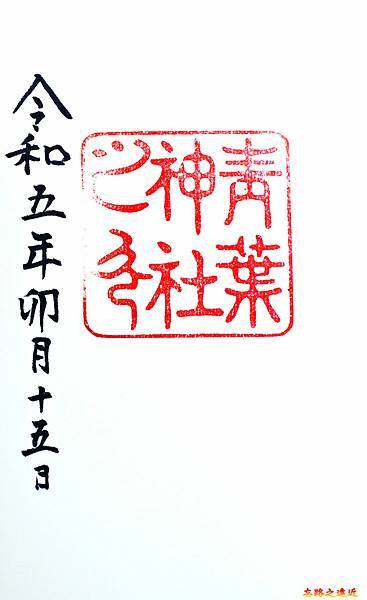 青葉
神社
之印
令和五年卯月十五日
忘路之遠近